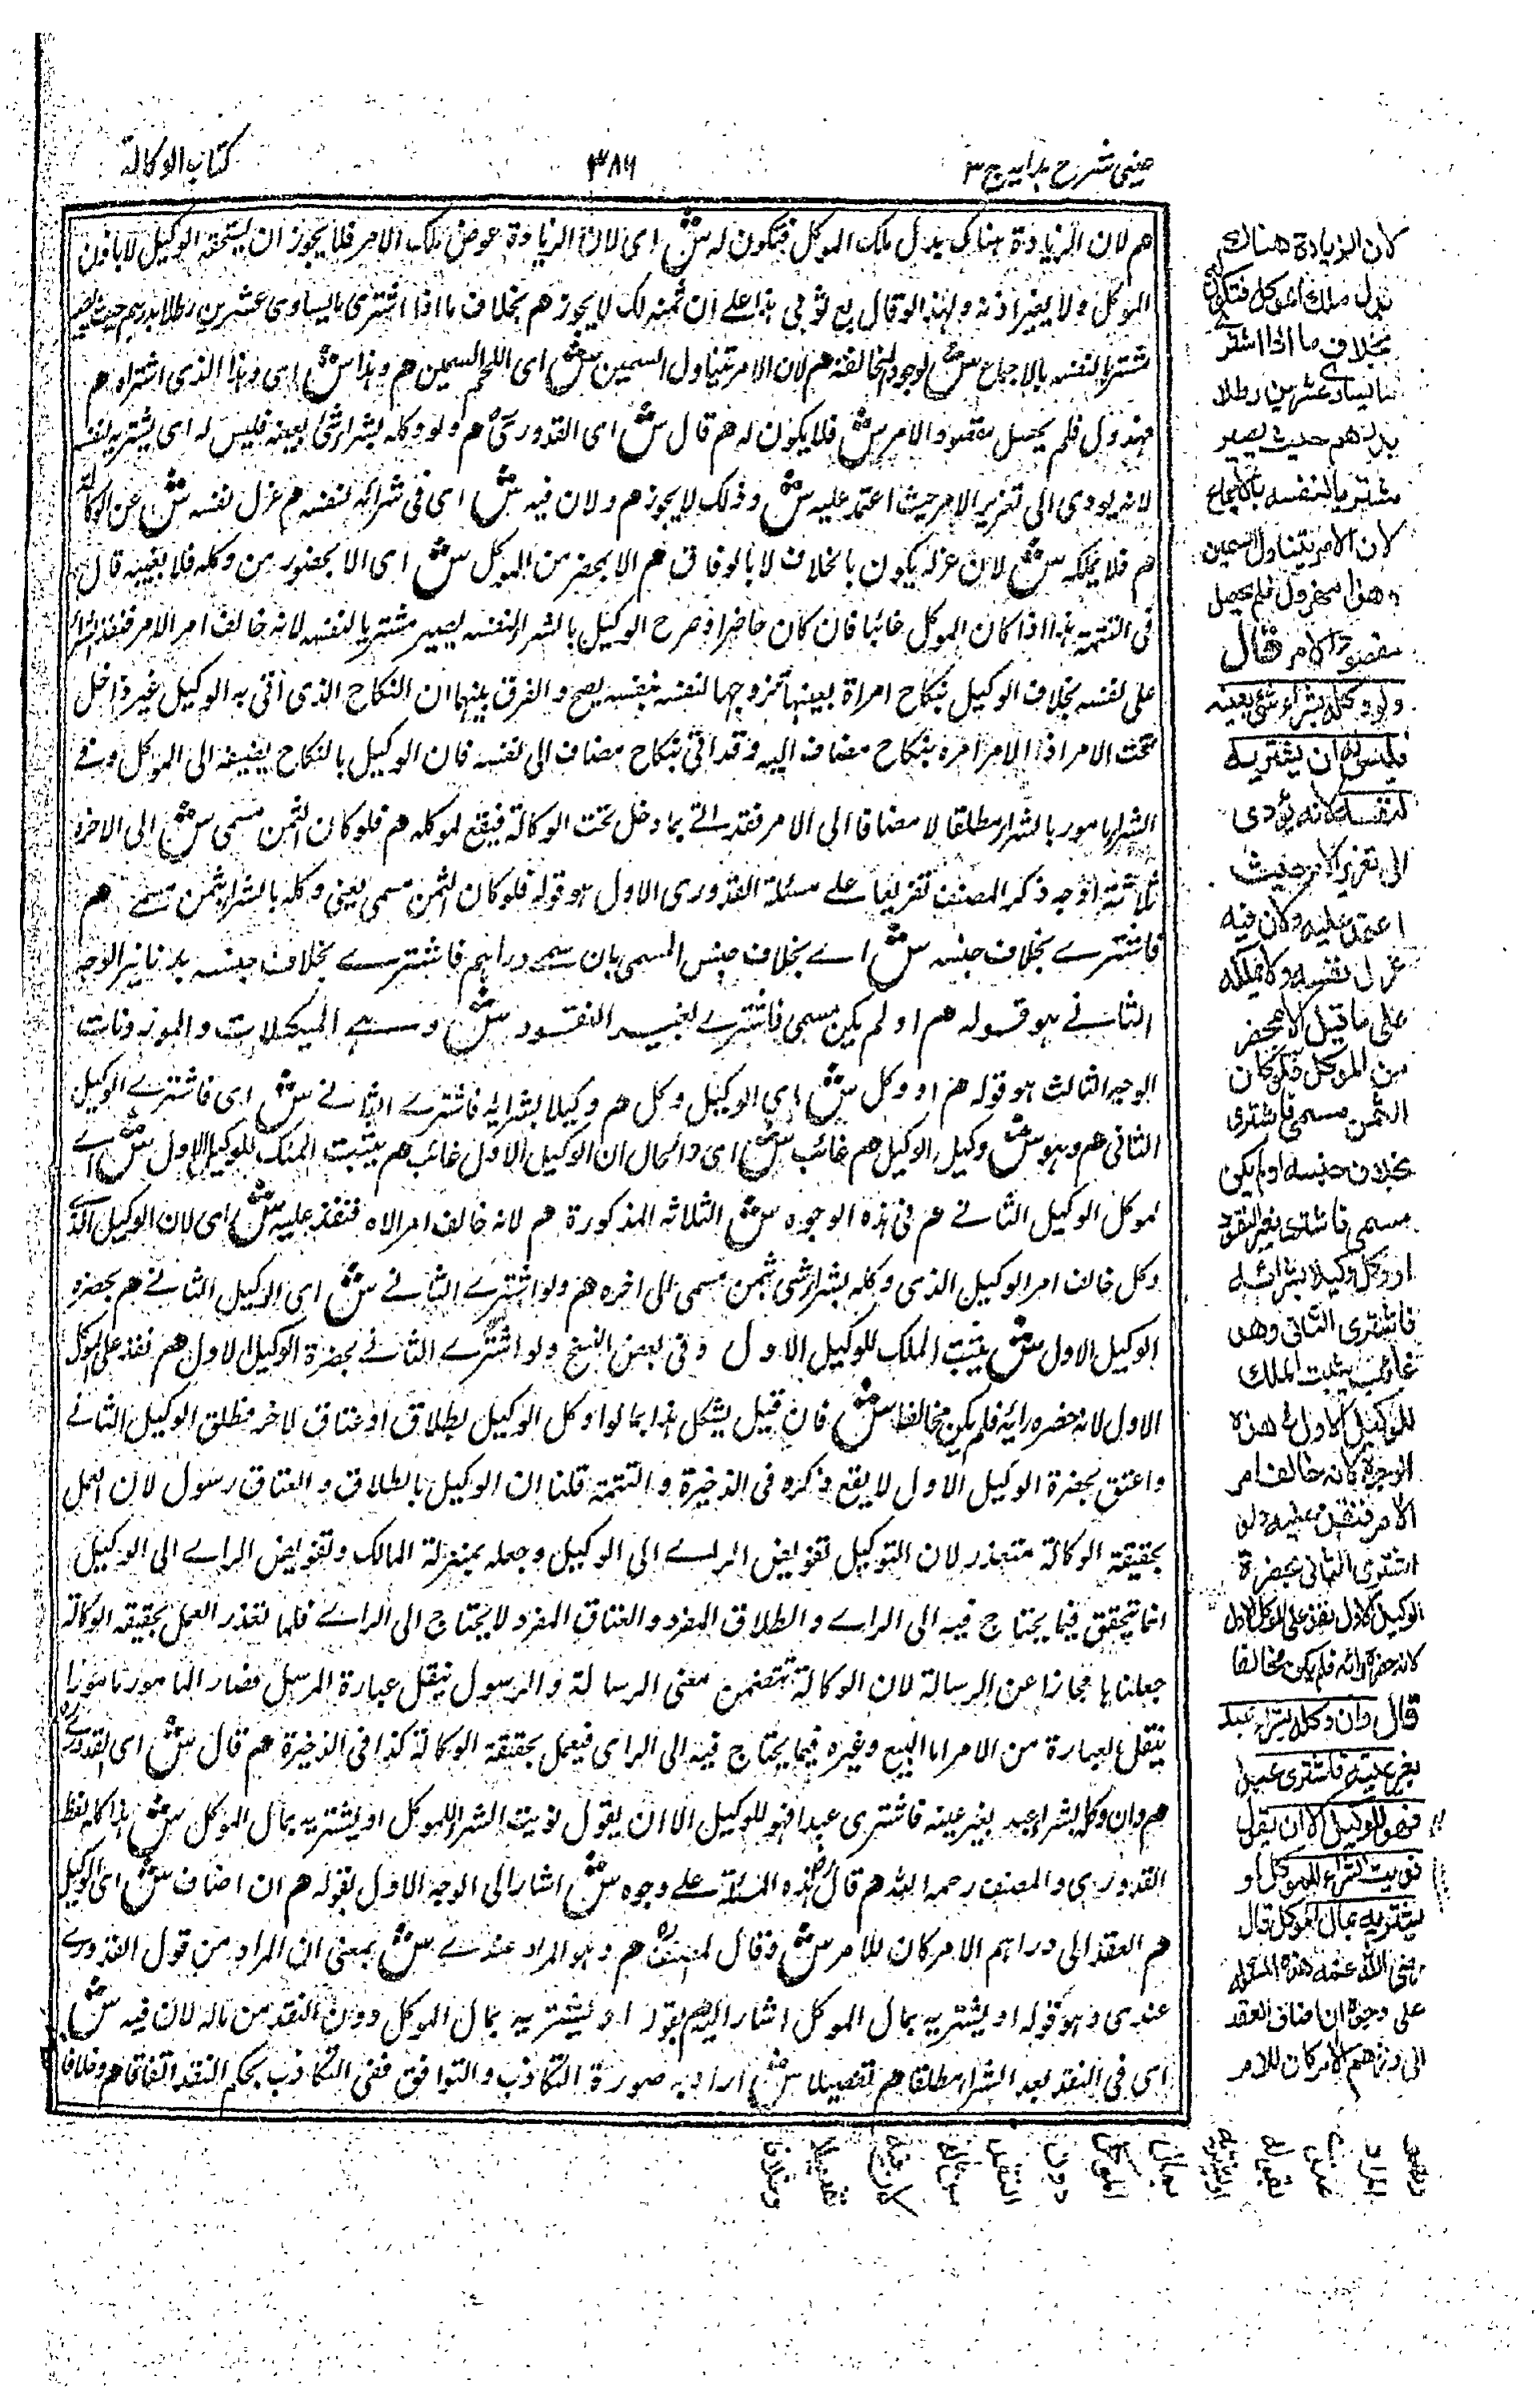 عینی شرح ہدایہ ج ۳
۳۸۶
کتاب الوکالة
هم لان الزيادة هناك بدل ملك الموكل فتكون له ش اى لان الزيادة عوض ملك الامر فلا يجوز ان يستحقه الوكيل لا باذن
الموكل ولا بغير اذنه ولهذا لو قال بع ثوبى هذا على ان ثمنه لك لا يجوز هم بخلاف ما اذا اشترى ما يساوى عشرين رطلا بدرهم حيث يصير
مشتريا لنفسه بالاجماع ش لوجود المخالفة هم لان الامر تيناول السمين ش اى اللحم السمين هم وهذا ش اى وهذا الذى اشتراه هم
مهزول فلم يحصل مقصود الامر ش فلا يكون له هم قال ش اى القدورى هم ولو وكله بشراء شئ بعينه فليس له اى يشتريه لنفسه
لانه يودى الى تغرير الامر حيث اعتمد عليه ش وذلك لا يجوز هم ولان فيه ش اى فى شرائه لنفسه هم عزل نفسه ش عن الوكالة
هم فلا يملكه ش لان عزله يكون بالخلاف لا بالوفاق هم الا بمحضر من الموكل ش اى الا بحضور من وكله فلا بغيبته قال
فى التتمة هذا اذا كان الموكل غائبا فان كان حاضرا وصرح الوكيل بالشراء لنفسه يصير مشتريا لنفسه لانه خالف امر الامر فنفذ الشراء
على نفسه بخلاف الوكيل بنكاح امراة بعينها تزوجها لنفسه بنفسه يصح والفرق بينهما ان النكاح الذى اتى به الوكيل غير داخل
تحت الامر اذ الامر امره بنكاح مضاف اليه وقد اتى بنكاح مضاف الى نفسه فان الوكيل بالنكاح يضيفه الى الموكل وفى
الشراء مامور بالشراء مطلقا لا مضافا الى الامر فقد اتى بما دخل تحت الوكالة فيقع لموكله هم فلو كان الثمن مسمى ش الى اخره
ثلاثة اوجه ذكر المصنف تفريعا على مسئلة القدورى الاول هو قوله فلو كان الثمن مسمى يعنى وكله بالشراء بثمن هم
فاشترى بخلاف جنسه ش اى بخلاف جنس المسمى بان سمى دراهم فاشترى بخلاف جنسه بدنانير الوجه
الثانى هو قوله هم او لم يكن مسمى فاشترى بغير النقود ش وهى المكيلات والموزونات
الوجه الثالث هو قوله هم او وكل ش اى الوكيل وكل هم وكيلا بشرائه فاشترى الثانى ش اى فاشترى الوكيل
الثانى هم وهو ش وكيل الوكيل هم غائب ش اى والحال ان الوكيل الاول غائب هم يثبت الملك للوكيل الاول ش اى
لموكل الوكيل الثانى هم فى هذه الوجوه ش الثلاثة المذكورة هم لانه خالف امر الامر فنفذ عليه ش اى لان الوكيل الذى
وكل خالف امر الوكيل الذى وكله بشراء شئ بثمن مسمى الى اخره هم ولو اشترى الثانى ش اى الوكيل الثانى هم بحضرة
الوكيل الاول ش يثبت الملك للوكيل الاول وفى بعض النسخ ولو اشترى الثانى بحضرة الوكيل الاول هم نفذ على الموكل
الاول لانه حضره رايه فلم يكن مخالفا ش فان قيل يشكل هذا بما لو وكل الوكيل بطلاق او عتاق لاخر فطلق الوكيل الثانى
واعتق بحضرة الوكيل الاول لا يقع ذكره فى الذخيرة والتتمة قلنا ان الوكيل بالطلاق والعتاق رسول لان العمل
بحقيقة الوكالة متعذر لان التوكيل تفويض الراى الى الوكيل وجعله بمنزلة المالك وتفويض الراى الى الوكيل
انما يتحقق فيما يحتاج فيه الى الراى والطلاق المفرد والعتاق المفرد لا يحتاج الى الراى فلما تعذر العمل بحقيقة الوكالة
جعلناها مجازا عن الرسالة لان الوكالة تتضمن معنى الرسالة والرسول ينقل عبارة المرسل فصار المامور مامورا
بنقل العبارة من الامر اما البيع وغيره فيما يحتاج فيه الى الراى فيعمل بحقيقة الوكالة كذا فى الذخيرة هم قال ش اى القدورى
هم وان وكله بشراء عبد بغير عينه فاشترى عبدا فهو للوكيل الا ان يقول نويت الشراء للموكل او يشتريه بمال الموكل ش هذا كله لفظ
القدورى والمصنف رحمه الله هم قال هذه المسئلة على وجوه ش اشار الى الوجه الاول بقوله هم ان اضاف ش اى الوكيل
هم العقد الى دراهم الامر كان للامر ش وقال المصنف هم وهو المراد عندى ش بمعنى ان المراد من قول القدورى
عندى وهو قوله او يشتريه بمال الموكل اشار اليه هم بقوله او يشتريه بمال الموكل دون النقد من ماله لان فيه ش
اى فى النقد بعد الشراء مطلقا هم تفصيلا ش اراد به صورة التكاذب والتوافق ففى التكاذب يحكم النقد اتفاقا هم وخلافا
لان الزيادة هناك
بدل ملك الموكل فتكون له
بخلاف ما اذا اشترى
ما يساوى عشرين رطلا
بدرهم حيث يصير
مشتريا لنفسه بالاجماع
لان الامر يتناول السمين
وهذا مهزول فلم يحصل
مقصود الامر قال
ولو وكله بشراء شئ بعينه
فليس له ان يشتريه
لنفسه لانه يؤدى
الى تغرير الامر حيث
اعتمد عليه ولان فيه
عزل نفسه ولا يملكه
على ما قيل الا بمحضر
من الموكل فلو كان
الثمن مسمى فاشترى
بخلاف جنسه او لم يكن
مسمى فاشترى بغير النقود
او وكل وكيلا بشرائه
فاشترى الثانى وهو
غائب يثبت الملك
للوكيل الاول فى هذه
الوجوه لانه خالف امر
الامر فنفذ عليه ولو
اشترى الثانى بحضرة
الوكيل الاول نفذ على الموكل الاول
لانه حضره رايه فلم يكن مخالفا
قال وان وكله بشراء عبد
بغير عينه فاشترى عبدا
فهو للوكيل الا ان يقول
نويت الشراء للموكل او
يشتريه بمال الموكل قال
رضى الله عنه هذه المسئلة
على وجوه ان اضاف العقد
الى دراهم الامر كان للامر
وهو
المراد
عندى
بقوله
او يشتريه
بمال
الموكل
دون
النقد
من ماله
لان فيه
تفصيلا
وخلافا